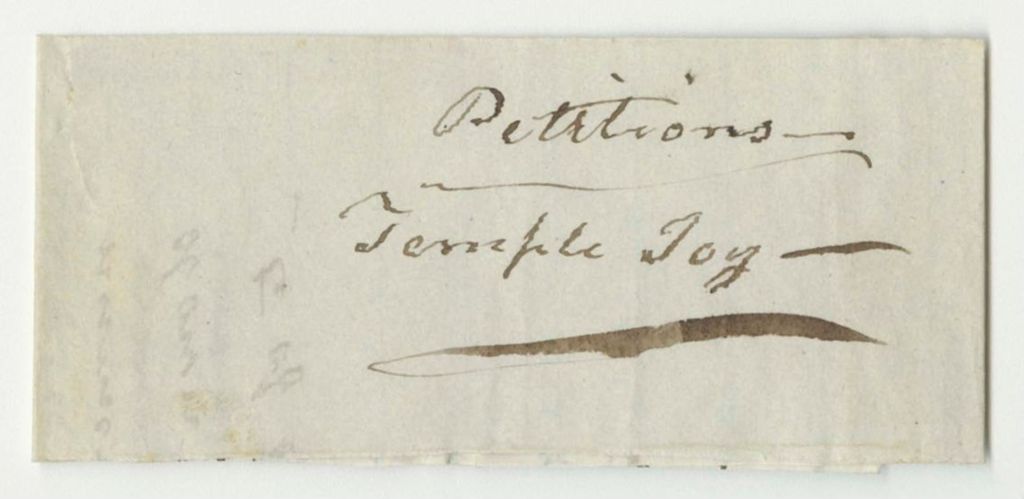 Petitions —
Temple Joy —